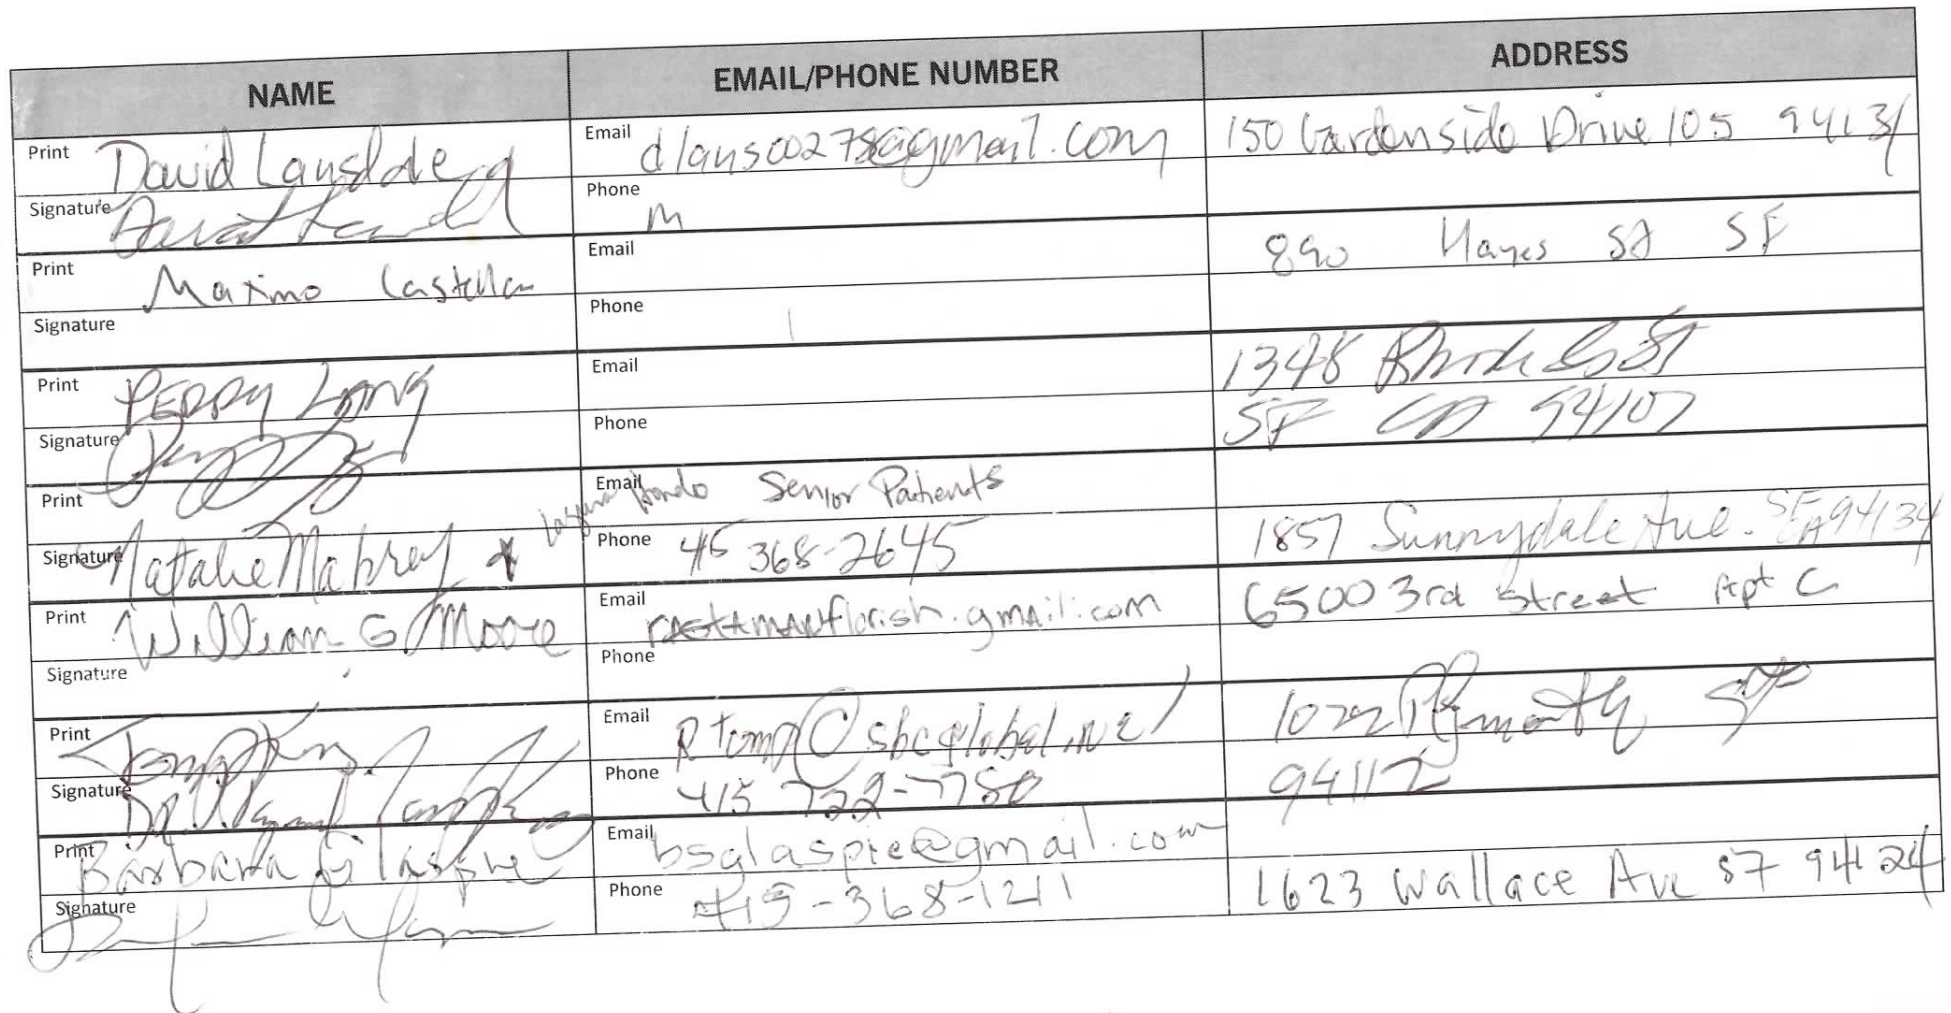 NAME EMAIL/PHONE NUMBER ADDRESS
Print David Email dlans00278@gmail.com 150 Gardenside Drive 105 94131
Signature Phone M
Print Maximo Castellan Email 890 Hayes St SF
Signature Phone
Print PERRY LONG Email 1348 St
Signature Phone SF CA 94107
Print Email Laguna Hondo Senior Patients
Signature Natalie Phone 415 368-2645 1857 Sunnydale Ave. SF CA 94134
Print William G Moore Email 6500 3rd Street Apt C
Signature Phone
Print Tompkins Email Rtomp@sbcglobal.net
Signature Phone 415 722-7780 94112
Print Barbara Glaspie Email bsglaspie@gmail.com
Signature Phone 415-368-1211 1623 Wallace Ave SF 94124